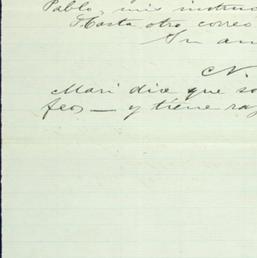 Pablo, mis instruc
Hasta otro correo
Su am
N.
Mari dice que so
feos — y tiene raz